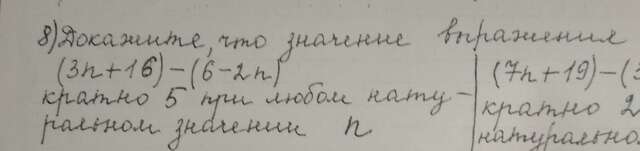 8) Докажите, что значение выражения
(3n+16)-(6-2n)
кратно 5 при любом нату-
ральном значении n
(7n+19)-(3
кратно 2
натурально